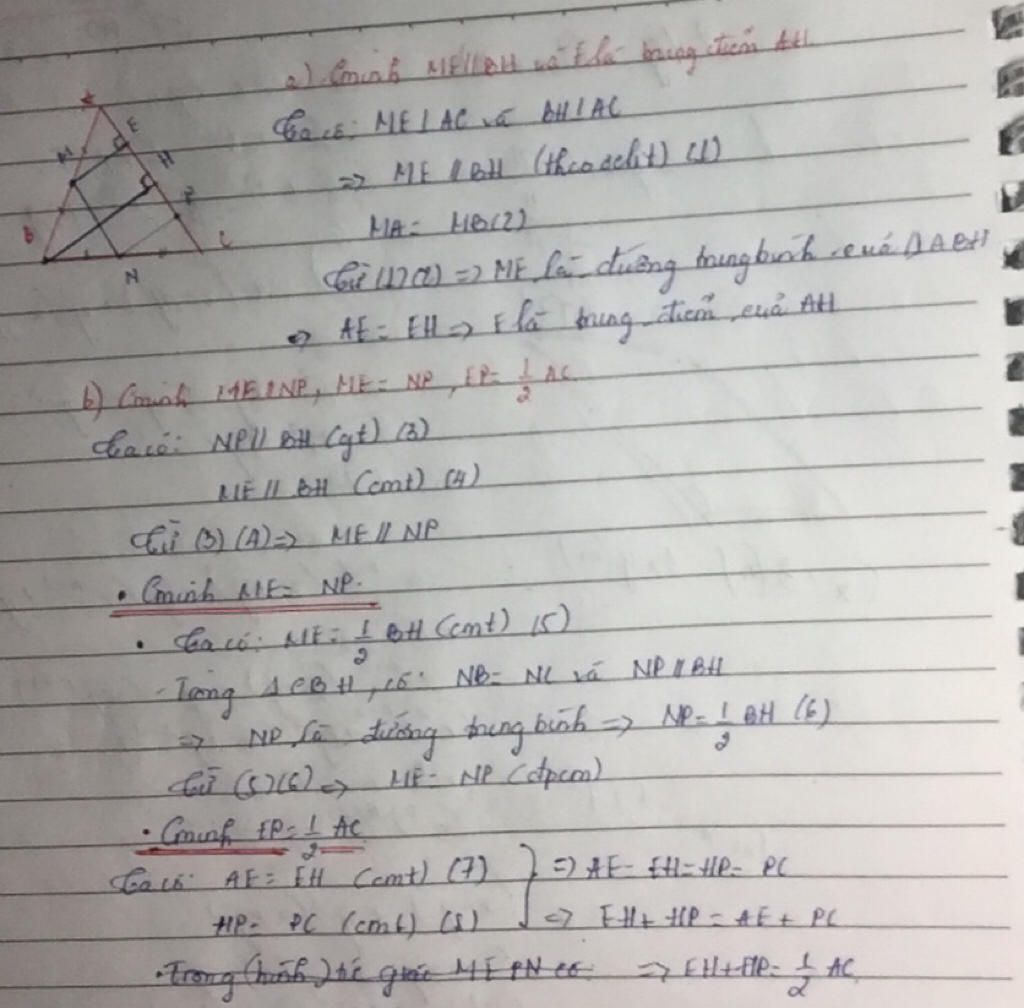 a) Cminh ME//BH và E là trung điểm AH
A
E
M
H
P
B
C
N
Ta có: ME⊥AC và BH⊥AC
=> ME // BH (theo đelit) (1)
MA = MB (2)
Từ (1)(2) => ME là đường trung bình của ΔABH
=> AE = EH => E là trung điểm của AH
b) Cminh ME//NP, ME = NP, EP = 1/2 AC
Ta có: NP // BH (gt) (3)
ME // BH (cmt) (4)
Từ (3) (4) => ME // NP
• Cminh ME = NP.
• Ta có: ME = 1/2 BH (cmt) (5)
- Trong ΔCBH, có: NB = NC và NP // BH
=> NP là đường trung bình => NP = 1/2 BH (6)
Từ (5)(6) => ME = NP (đpcm)
• Cminh EP = 1/2 AC
Ta có: AE = EH (cmt) (7) } => AE = EH = HP = PC
HP = PC (cmt) (8) => EH + HP = AE + PC
• Trong (hình) tứ giác MEPN có => EH + HP = 1/2 AC